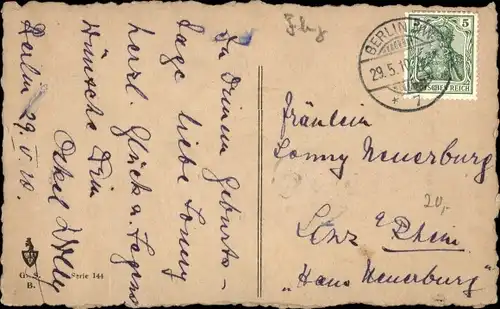 Zu Deinem Geburts-
tage liebe Lonny
herzl. Glück u. Segens
Wünsche Dein
Onkel Willy
Berlin 29. V. 10.
Serie 144
B.
BERLIN NW
29.5.10
* 7
5
DEUTSCHES REICH
Fräulein
Lonny Neuerburg
Linz a/Rhein
"Haus Neuerburg"
20,-